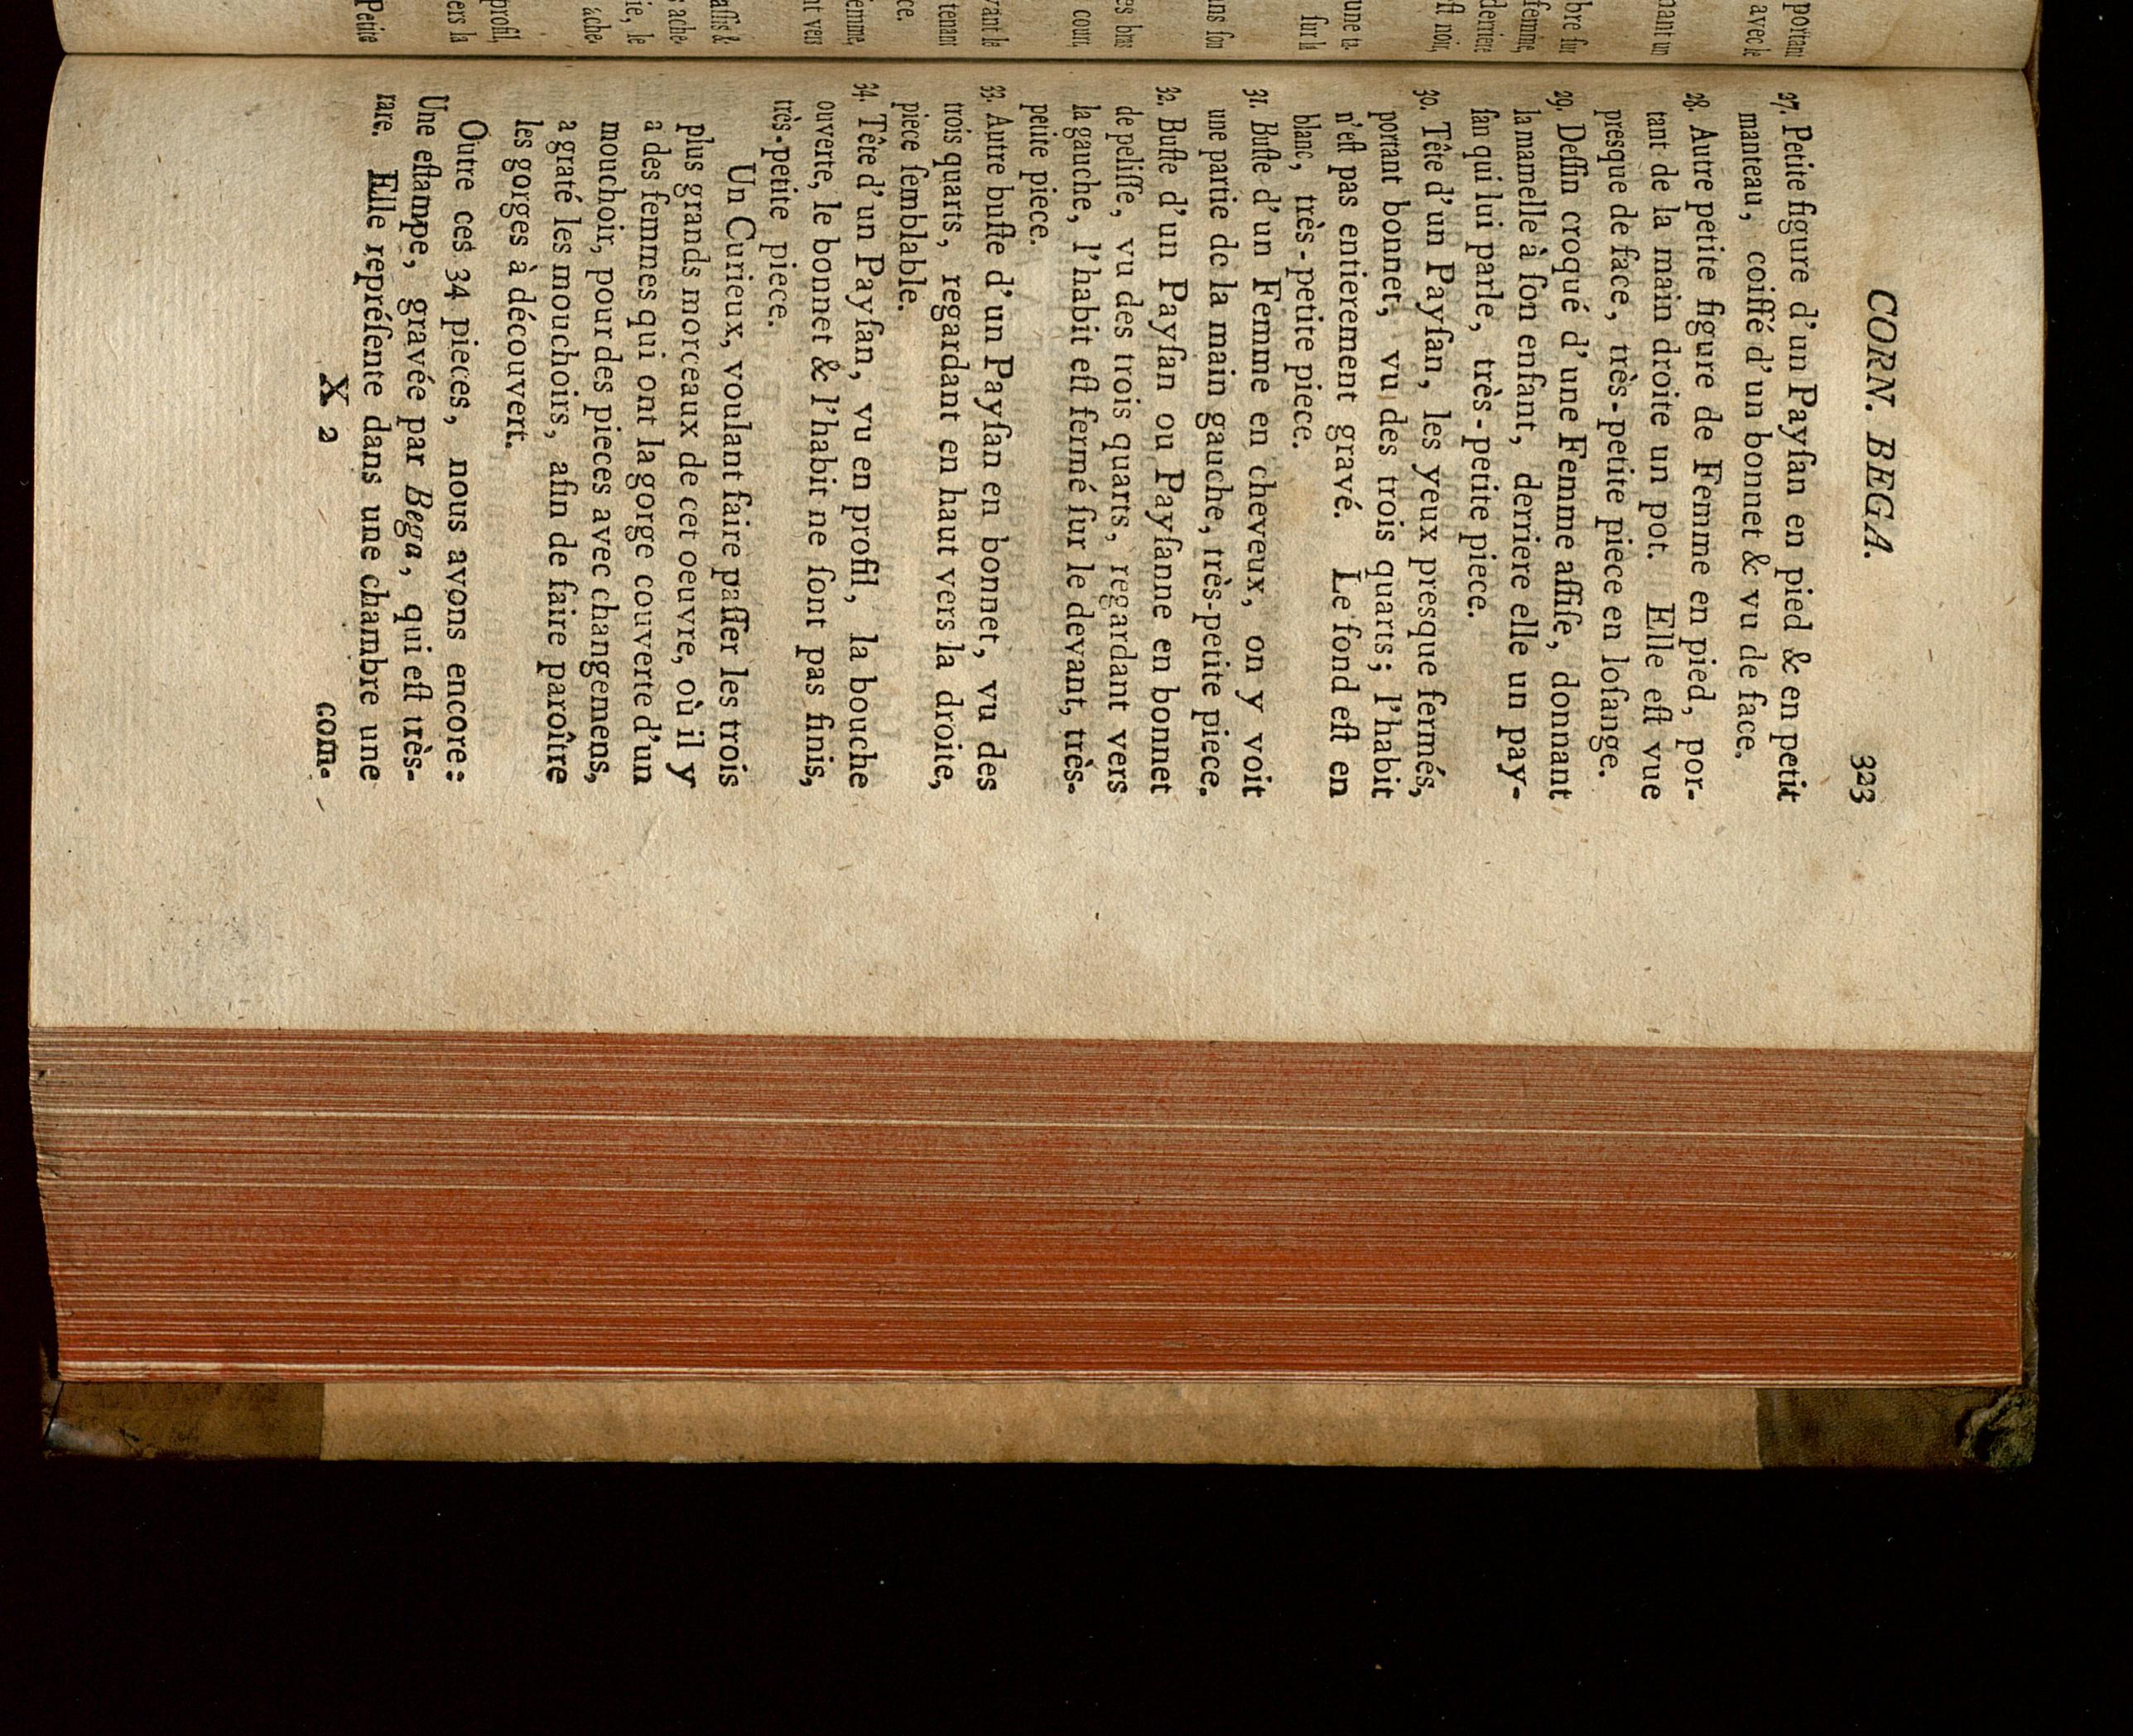 CORN. BEGA. 323
27. Petite figure d'un Payſan en pied & en petit
manteau, coiffé d'un bonnet & vu de face.
28. Autre petite figure de Femme en pied, por-
tant de la main droite un pot. Elle eſt vue
presque de face, très-petite piece en loſange.
29. Deſſin croqué d'une Femme aſſiſe, donnant
la mamelle à ſon enfant, derriere elle un pay-
ſan qui lui parle, très-petite piece.
30. Tête d'un Payſan, les yeux presque fermés,
portant bonnet, vu des trois quarts; l'habit
n'eſt pas entierement gravé. Le fond eſt en
blanc, très-petite piece.
31. Buſte d'un Femme en cheveux, on y voit
une partie de la main gauche, très-petite piece.
32. Buſte d'un Payſan ou Payſanne en bonnet
de peliſſe, vu des trois quarts, regardant vers
la gauche, l'habit eſt fermé ſur le devant, très-
petite piece.
33. Autre buſte d'un Payſan en bonnet, vu des
trois quarts, regardant en haut vers la droite,
piece ſemblable.
34. Tête d'un Payſan, vu en profil, la bouche
ouverte, le bonnet & l'habit ne ſont pas finis,
très-petite piece.
Un Curieux, voulant faire paſſer les trois
plus grands morceaux de cet oeuvre, où il y
a des femmes qui ont la gorge couverte d'un
mouchoir, pour des pieces avec changemens,
a graté les mouchoirs, afin de faire paroître
les gorges à découvert.
Outre ces 34 pieces, nous avons encore:
Une eſtampe, gravée par Bega, qui eſt très-
rare. Elle repréſente dans une chambre une
X 2 com-